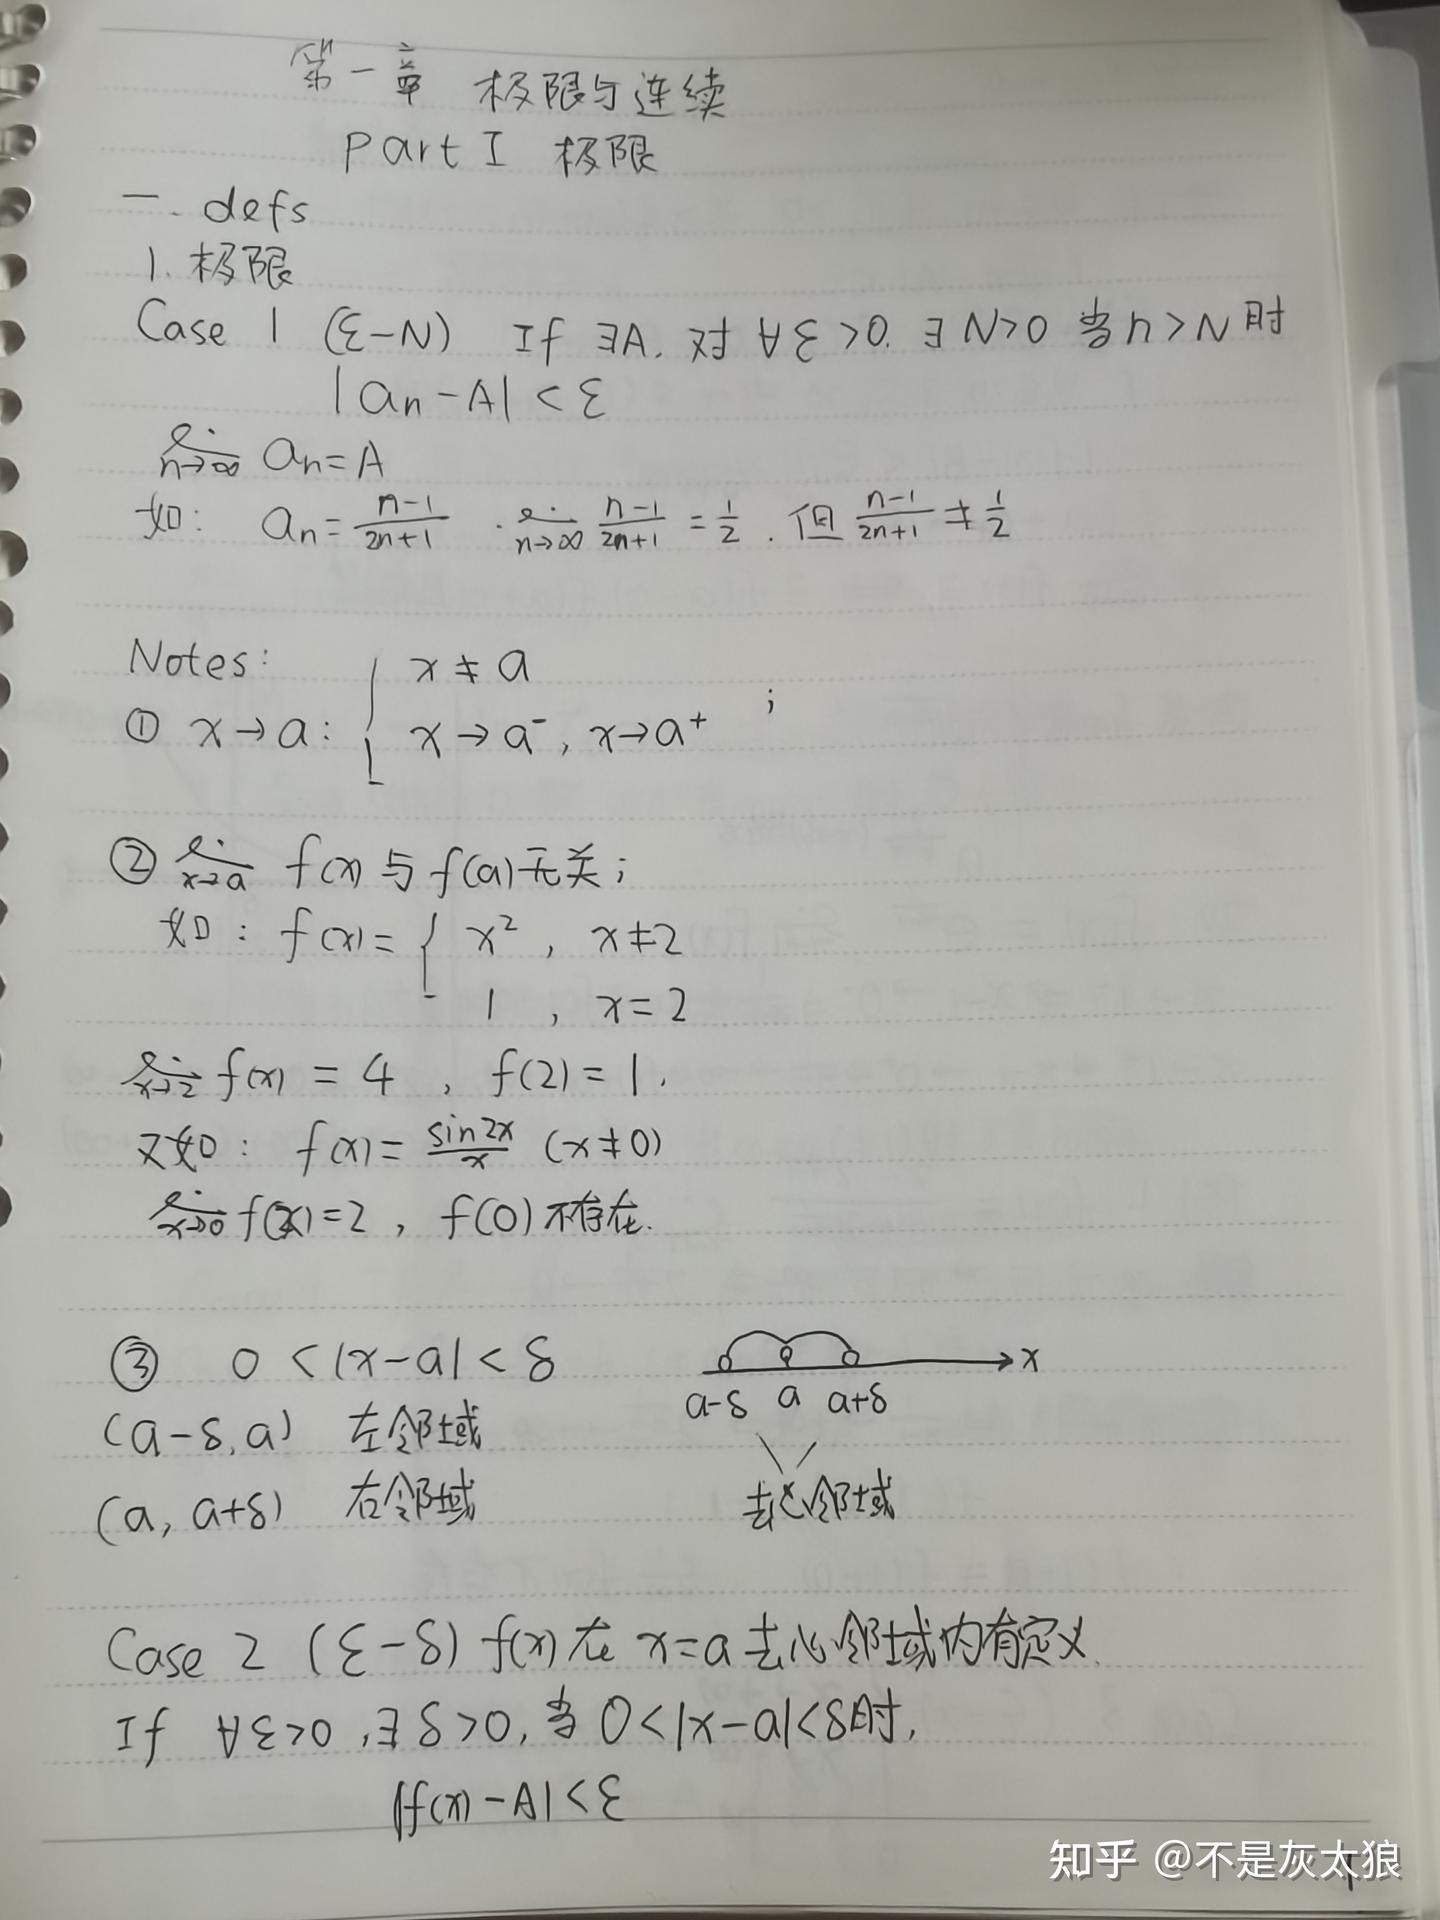 第一章 极限与连续
Part I 极限
一. defs
1. 极限
Case 1 (ε-N) If ∃A. 对∀ε>0. ∃N>0 当n>N时
|an-A|<ε
lim n→∞ an=A
如: an=(n-1)/(2n+1) . lim n→∞ (n-1)/(2n+1) = 1/2 . 但 (n-1)/(2n+1) ≠ 1/2
Notes:
① x→a: { x≠a
x→a⁻, x→a⁺ ;
② lim x→a f(x) 与 f(a) 无关;
如: f(x)= { x², x≠2
1, x=2
lim x→2 f(x) = 4, f(2)=1.
又如: f(x)= sin2x/x (x≠0)
lim x→0 f(x)=2, f(0)不存在.
③ 0<|x-a|<δ
x
a-δ a a+δ
(a-δ,a) 左邻域
(a, a+δ) 右邻域
去心邻域
Case 2 (ε-δ) f(x)在 x=a去心邻域内有定义.
If ∀ε>0, ∃δ>0, 当0<|x-a|<δ时,
|f(x)-A|<ε
1
知乎 @不是灰太狼